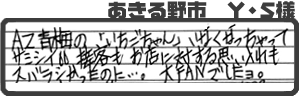 あきる野市 Y・S様
AZ青梅の「いちごちゃん」いなくなっちゃって
サミシイ!! 接客も お店に対する思い入れも
スバラシかったのに…。大FANでしたョ。